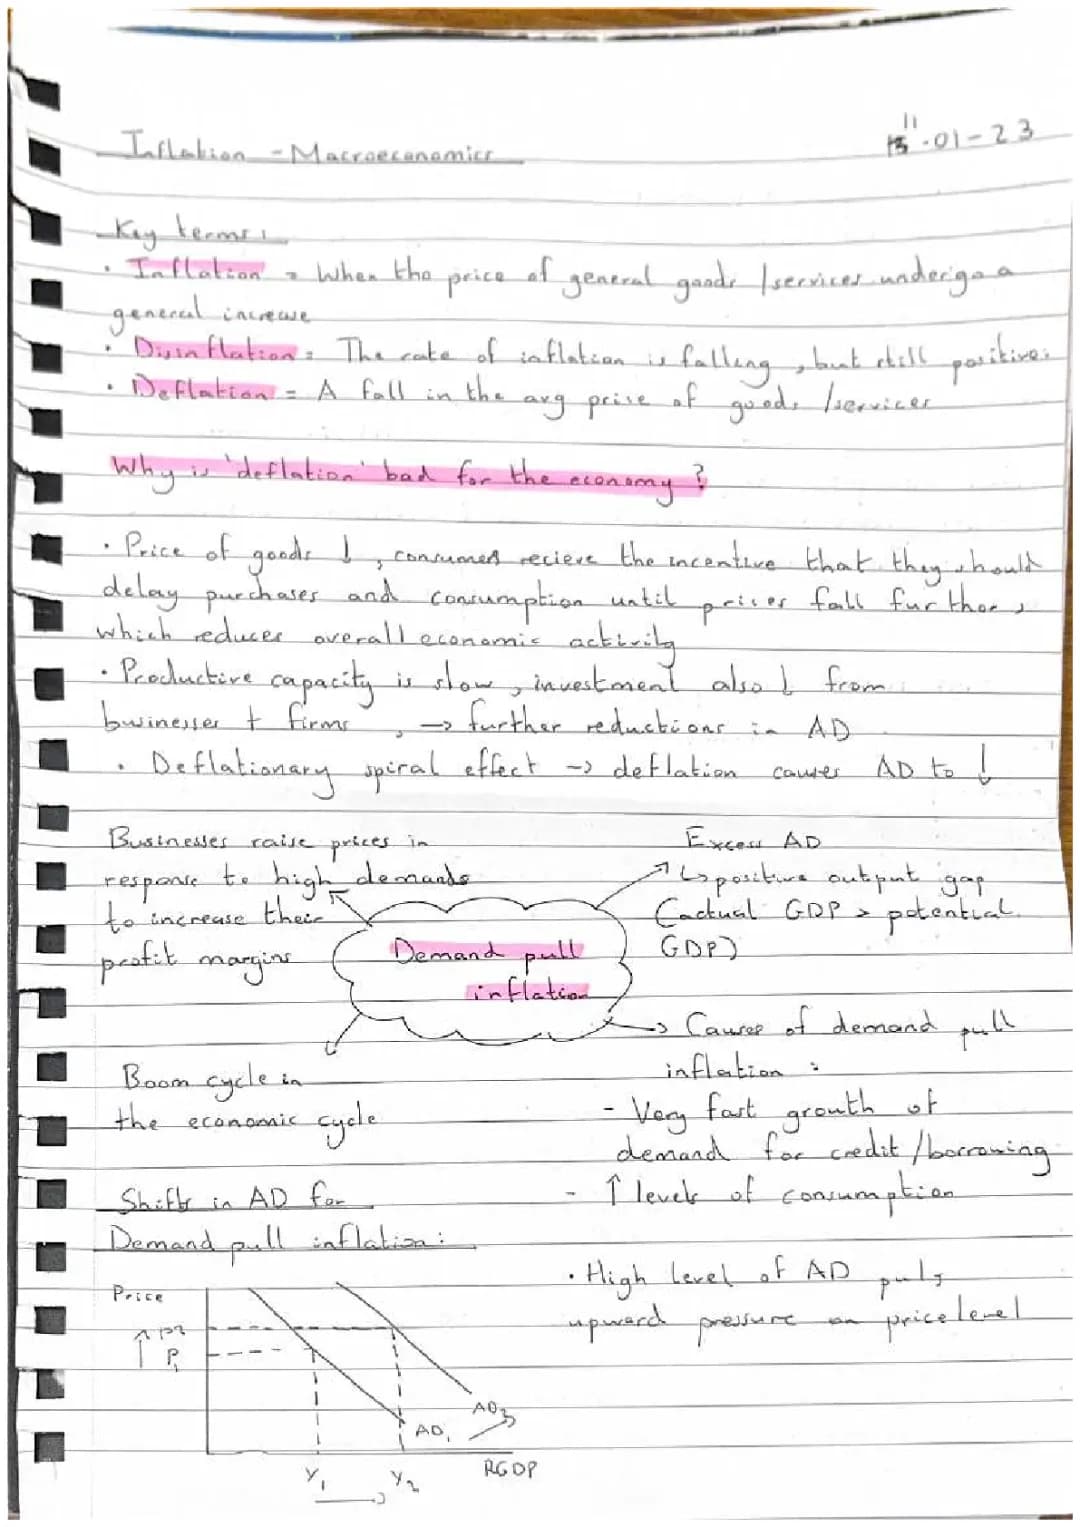 Inflation - Macroeconomics
11.01-23
Key terms:
· Inflation = When the price of general goods /services undergo a
general increase
· Disinflation = The rate of inflation is falling, but still positive.
· Deflation = A fall in the avg price of goods /services
Why is 'deflation' bad for the economy?
· Price of goods ↓, consumers recieve the incentive that they should
delay purchases and consumption until prices fall further,
which reduces overall economic activity
· Productive capacity is slow, investment also ↓ from
businesses + firms, → further reductions in AD
· Deflationary spiral effect → deflation causes AD to ↓
Businesses raise prices in
response to high demands
to increase their
profit margins
Excess AD
↳ positive output gap
(actual GDP > potential
GDP)
Demand pull
inflation
Boom cycle in
the economic cycle
→ Causes of demand pull
inflation:
- Very fast growth of
demand for credit /borrowing
- ↑ levels of consumption
· High level of AD puts
upward pressure on price level
Shifts in AD for
Demand pull inflation:
Price
↑ P2
P1
AD2
AD1
RGDP
Y1 → Y2